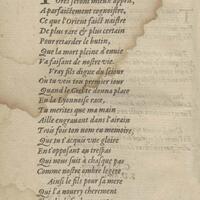 ores seront mieux appris,
A parfaictement cognoistre,
Ce que l'Orient faict naistre
De plus rare & plus certain
Pour retarder le butin,
Que la mort pleine d'envie
Va faisant de nostre vie.
Vray fils digne du sejour
Où tu veis ton premier jour
Quand le Ciel te donna place
En la Lyonnoise race,
Tu merites que ma main
Aille engravant dans l'airain
Trois fois ton nom en memoire,
Que tu t'acquiz vive gloire
En t'opposant au trespas
Qui nous suit à chasque pas
Comme nostre ombre legere
Ainsi le fils pour sa mere
Qui l'a nourry cherement